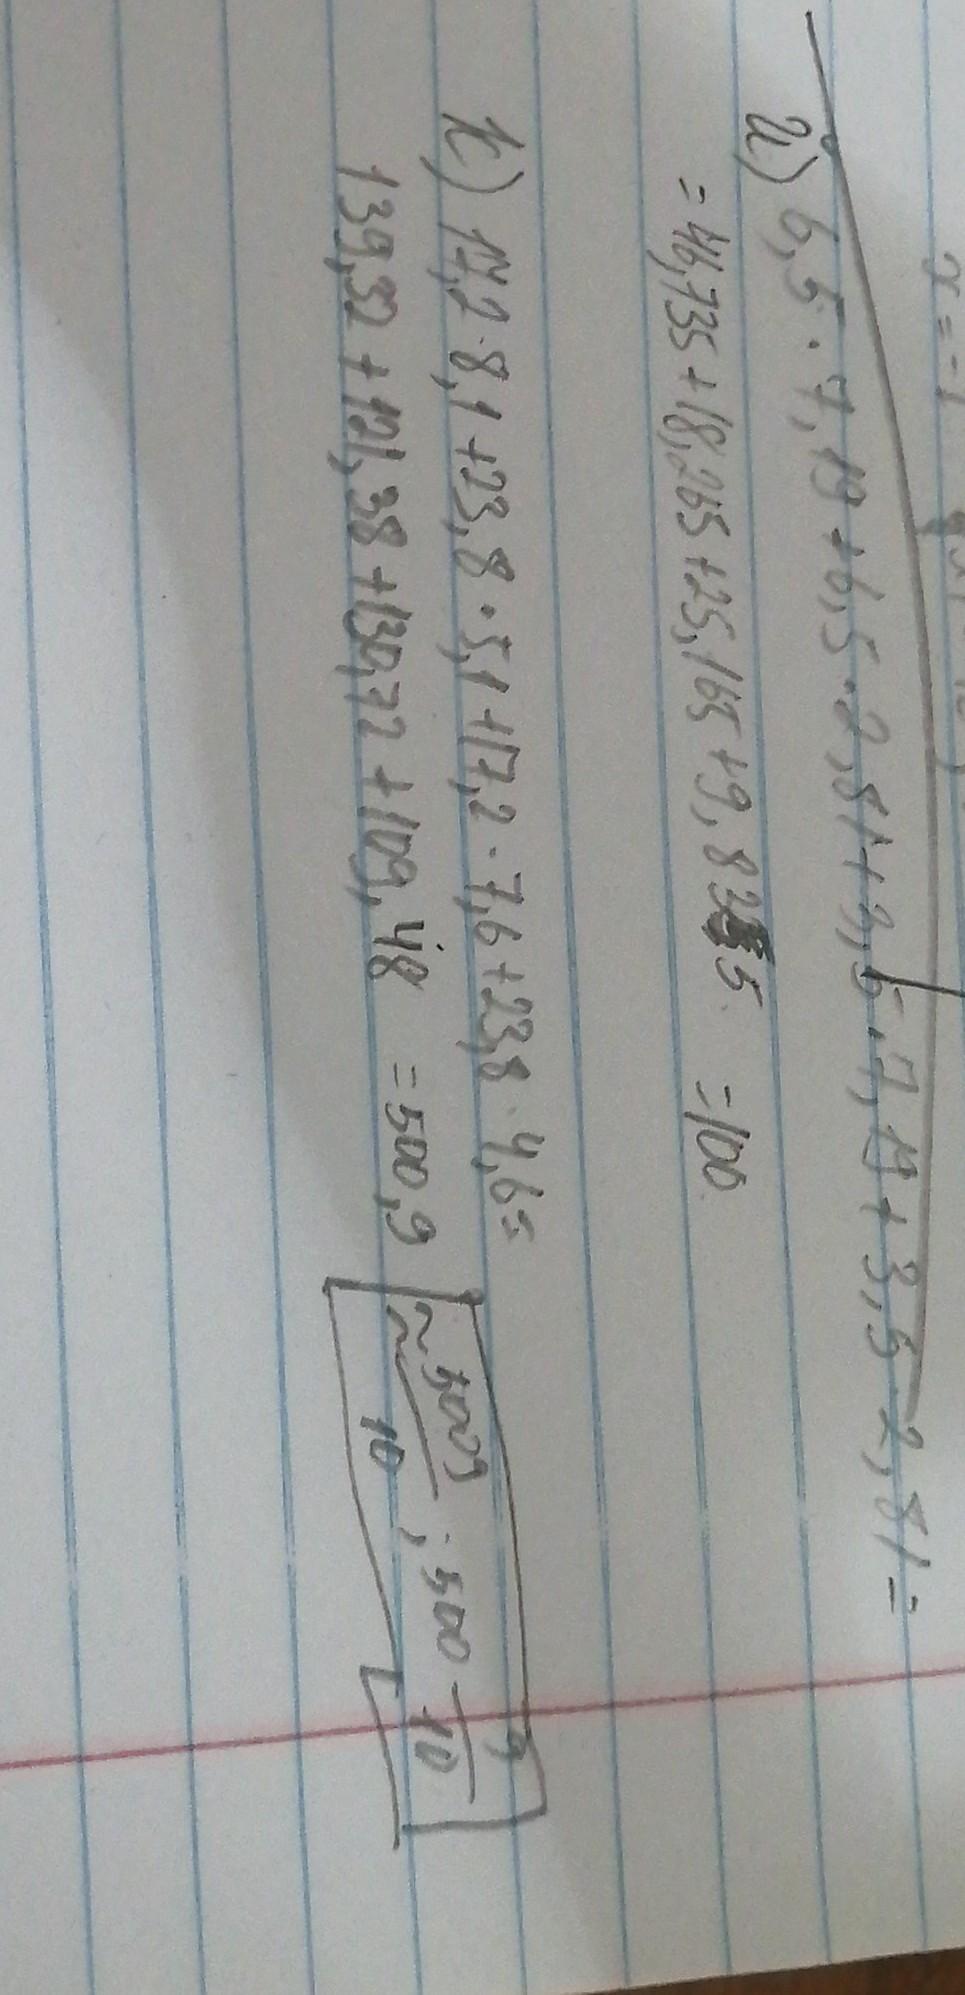 x = -1
и) 6,5 · 7,19 + 6,5 · 2,81 + 3,5 · 7,19 + 3,5 · 2,81 =
= 46,735 + 18,265 + 25,165 + 9,835 = 100
к) 17,2 · 8,1 + 23,8 · 5,1 + 17,2 · 7,6 + 23,8 · 4,6 =
139,32 + 121,38 + 130,72 + 109,48 = 500,9 ≈ 5009/10 ; 500 9/10